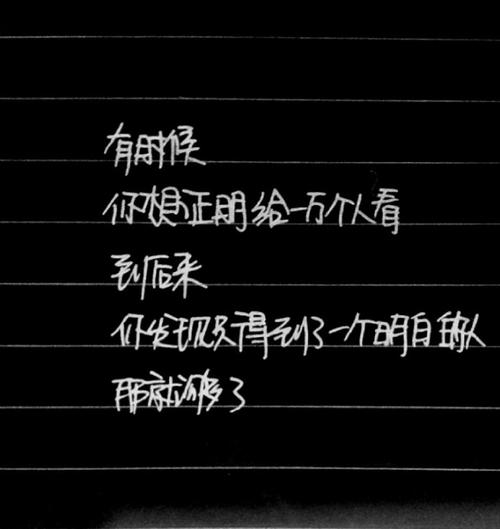 有时候
你想证明给一万个人看
到后来
你发现只得到了一个明白的人
那就够了